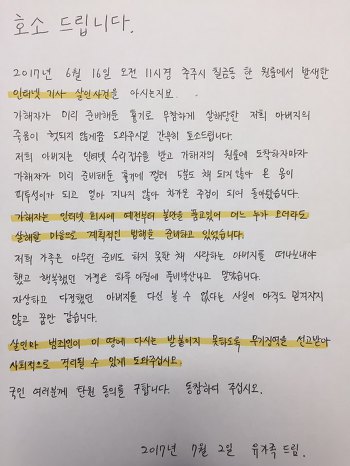 호소 드립니다.
2017년 6월 16일 오전 11시경 충주시 칠금동 한 원룸에서 발생한
인터넷 기사 살인사건을 아시는지요.
가해자가 미리 준비해둔 흉기로 무참하게 살해당한 저희 아버지의
죽음이 헛되지 않게끔 도와주시길 간곡히 호소드립니다.
저희 아버지는 인터넷 수리접수를 받고 가해자의 원룸에 도착하자마자
가해자가 미리 준비해둔 흉기에 찔려 5분도 채 되기 않아 온 몸이
피투성이가 되고 얼마 지나지 않아 차가운 주검이 되어 돌아왔습니다.
가해자는 인터넷 회사에 예전부터 불만을 품고있어 어느 누가 오더라도
살해할 마음으로 계획적인 범행을 준비하고 있었습니다.
저희 가족은 아무런 준비도 하지 못한 채 사랑하는 아버지를 떠나보내야
했고 행복했던 가정은 하루 아침에 풍비박산나고 말았습니다.
자상하고 다정했던 아버지를 다신 볼 수 없다는 사실이 아직도 믿겨지지
않고 꿈만 같습니다.
살인마 범죄인이 이 땅에 다시는 발붙이지 못하도록 무기징역을 선고받아
사회적으로 격리될 수 있게 도와주십시오.
국민 여러분께 탄원 동의를 구합니다. 동참하여 주십시오.
2017년 7월 2일 유가족 드림.